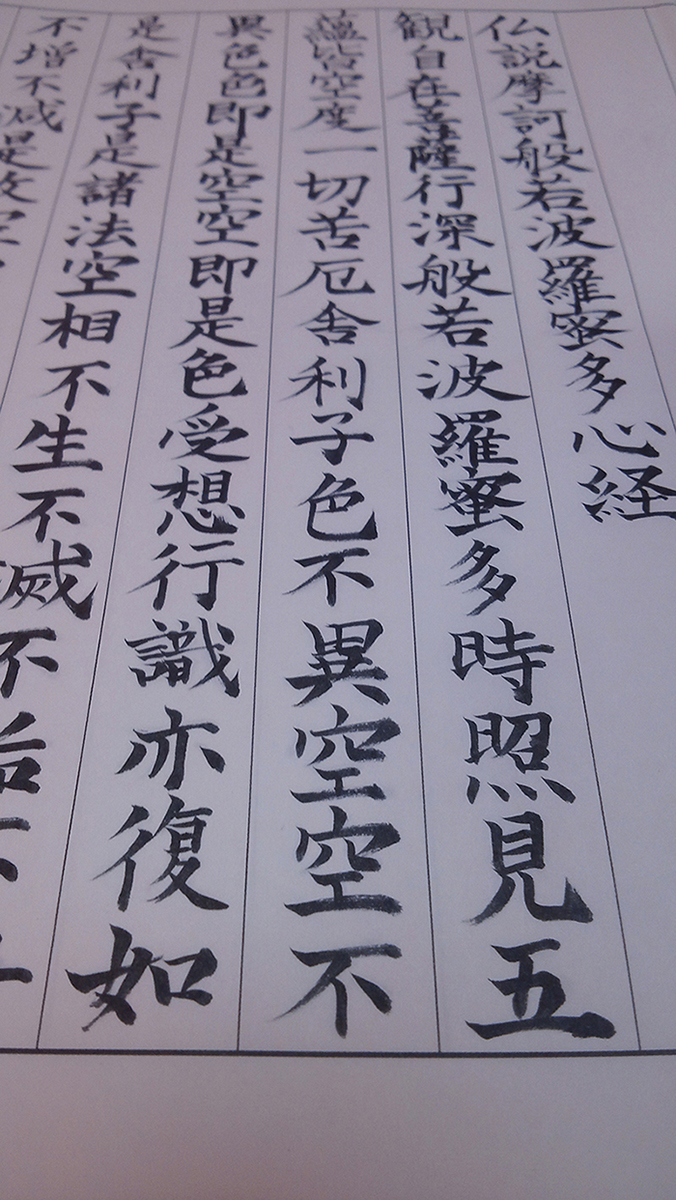 仏説摩訶般若波羅蜜多心経
観自在菩薩行深般若波羅蜜多時照見五
蘊皆空度一切苦厄舎利子色不異空空不
異色色即是空空即是色受想行識亦復如
是舎利子是諸法空相不生不滅不
不増不減是故